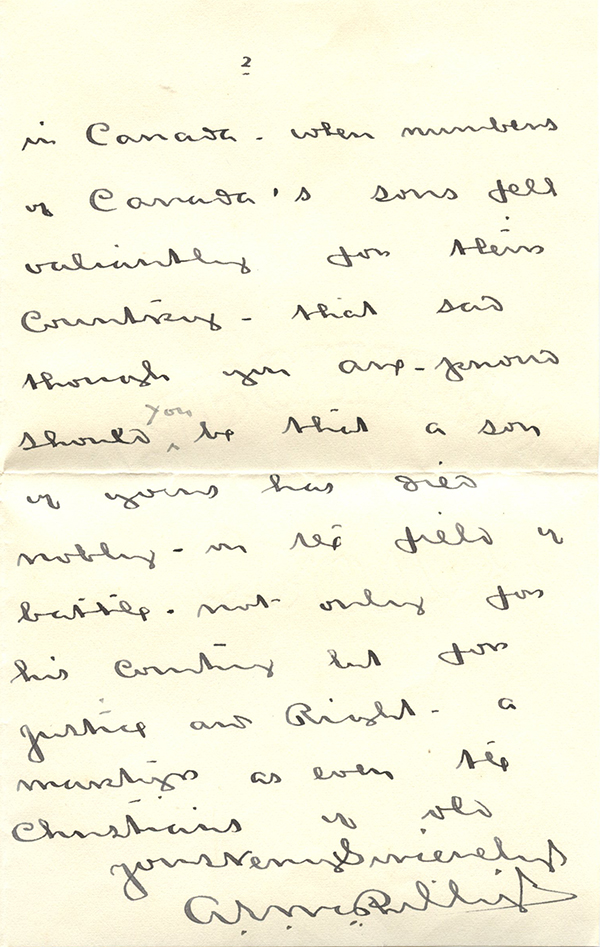 2
in Canada - when numbers
of Canada's sons fell
valiantly for their
Country - that sad
though you are - proud
should you be that a son
of yours has died
nobly - on the field of
battle - not only for
his Country but for
justice and Right - a
martyr as even the
Christians of old
yours Very Sincerely